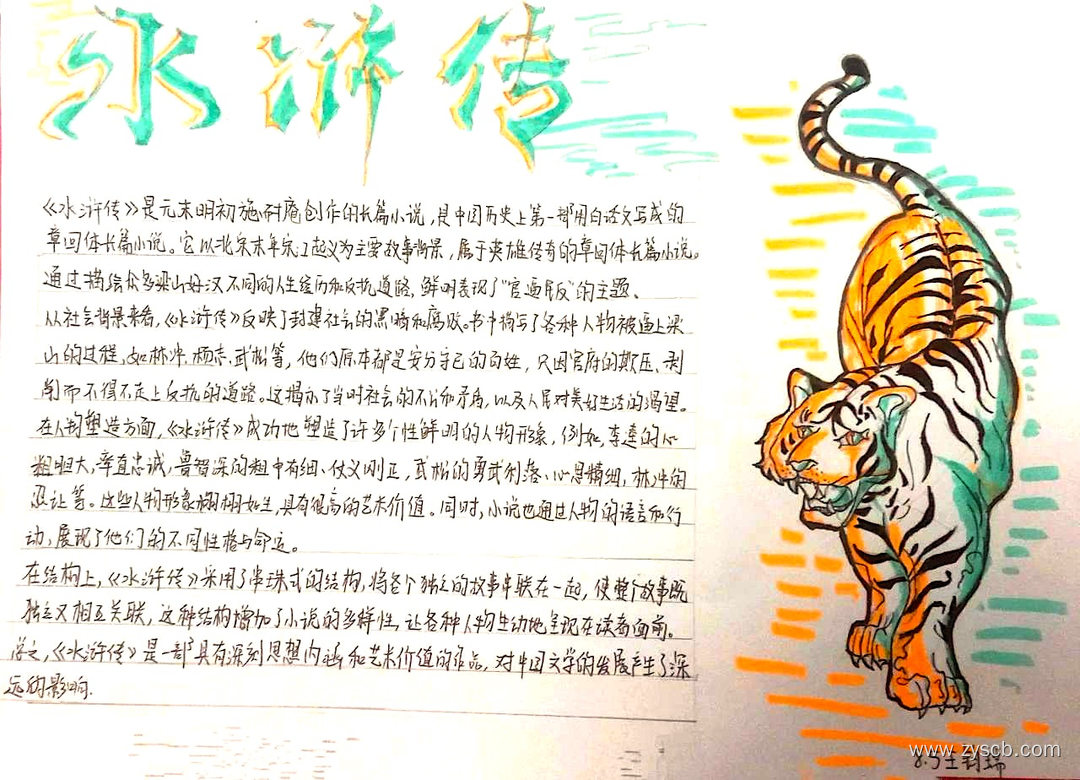 水浒传
《水浒传》是元末明初施耐庵创作的长篇小说，是中国历史上第一部用白话文写成的
章回体长篇小说。它以北宋末年宋江起义为主要故事背景，属于英雄传奇的章回体长篇小说。
通过描绘众多梁山好汉不同的人生经历和反抗道路，鲜明表现了“官逼民反”的主题、
从社会背景来看，《水浒传》反映了封建社会的黑暗和腐败。书中描写了各种人物被逼上梁
山的过程，如林冲、杨志、武松等，他们原本都是安分守己的百姓，只因官府的欺压、剥
削而不得不走上反抗的道路。这揭示了当时社会的不公和矛盾，以及人民对美好生活的渴望。
在人物塑造方面，《水浒传》成功地塑造了许多个性鲜明的人物形象，例如，李逵的心
粗胆大，率直忠诚，鲁智深的粗中有细、仗义刚正，武松的勇武利落、心思精细，林冲的
忍让等。这些人物形象栩栩如生，具有很高的艺术价值。同时，小说也通过人物的语言和行
动，展现了他们的不同性格与命运。
在结构上，《水浒传》采用了串珠式的结构，将各个独立的故事串联在一起，使整个故事既
独立又相互关联，这种结构增加了小说的多样性，让各种人物生动地呈现在读者面前。
总之，《水浒传》是一部具有深刻思想内涵和艺术价值的作品，对中国文学的发展产生了深
远的影响.
www.zyscb.com